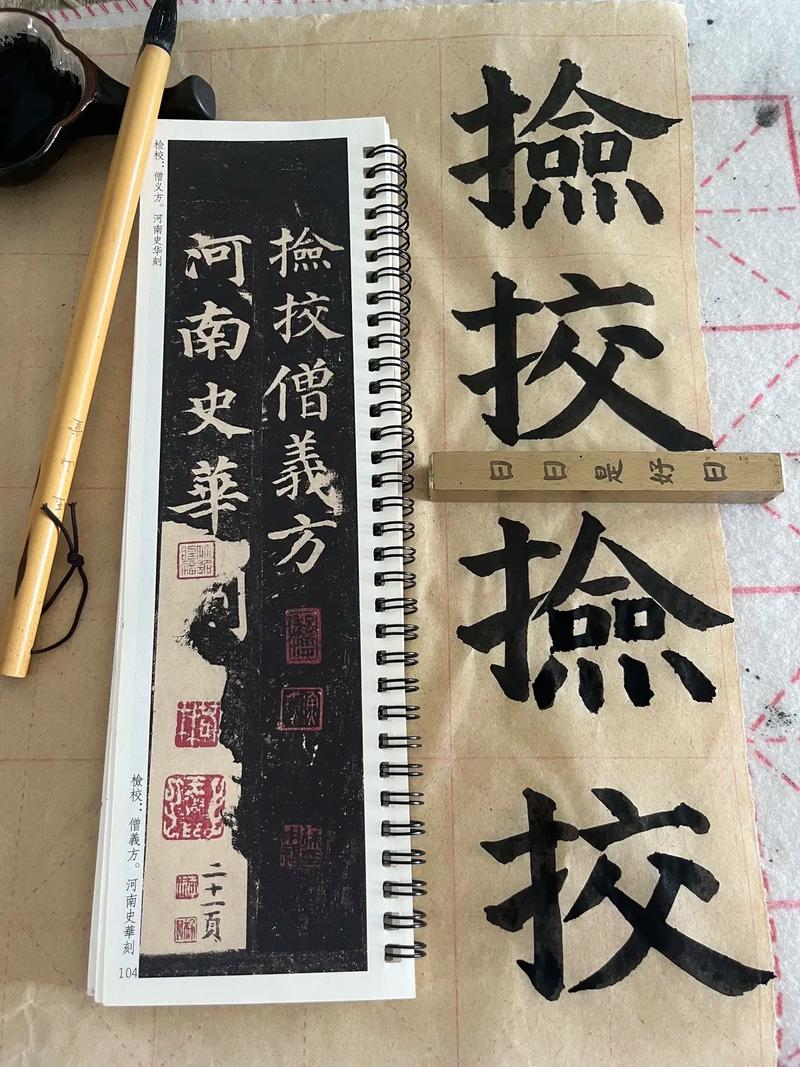 撿挍僧義方
河南史華刻
二十一頁
检校：僧义方。河南史华刻
檢校：僧義方。河南史華刻
104
撿挍
撿挍
日日是好日